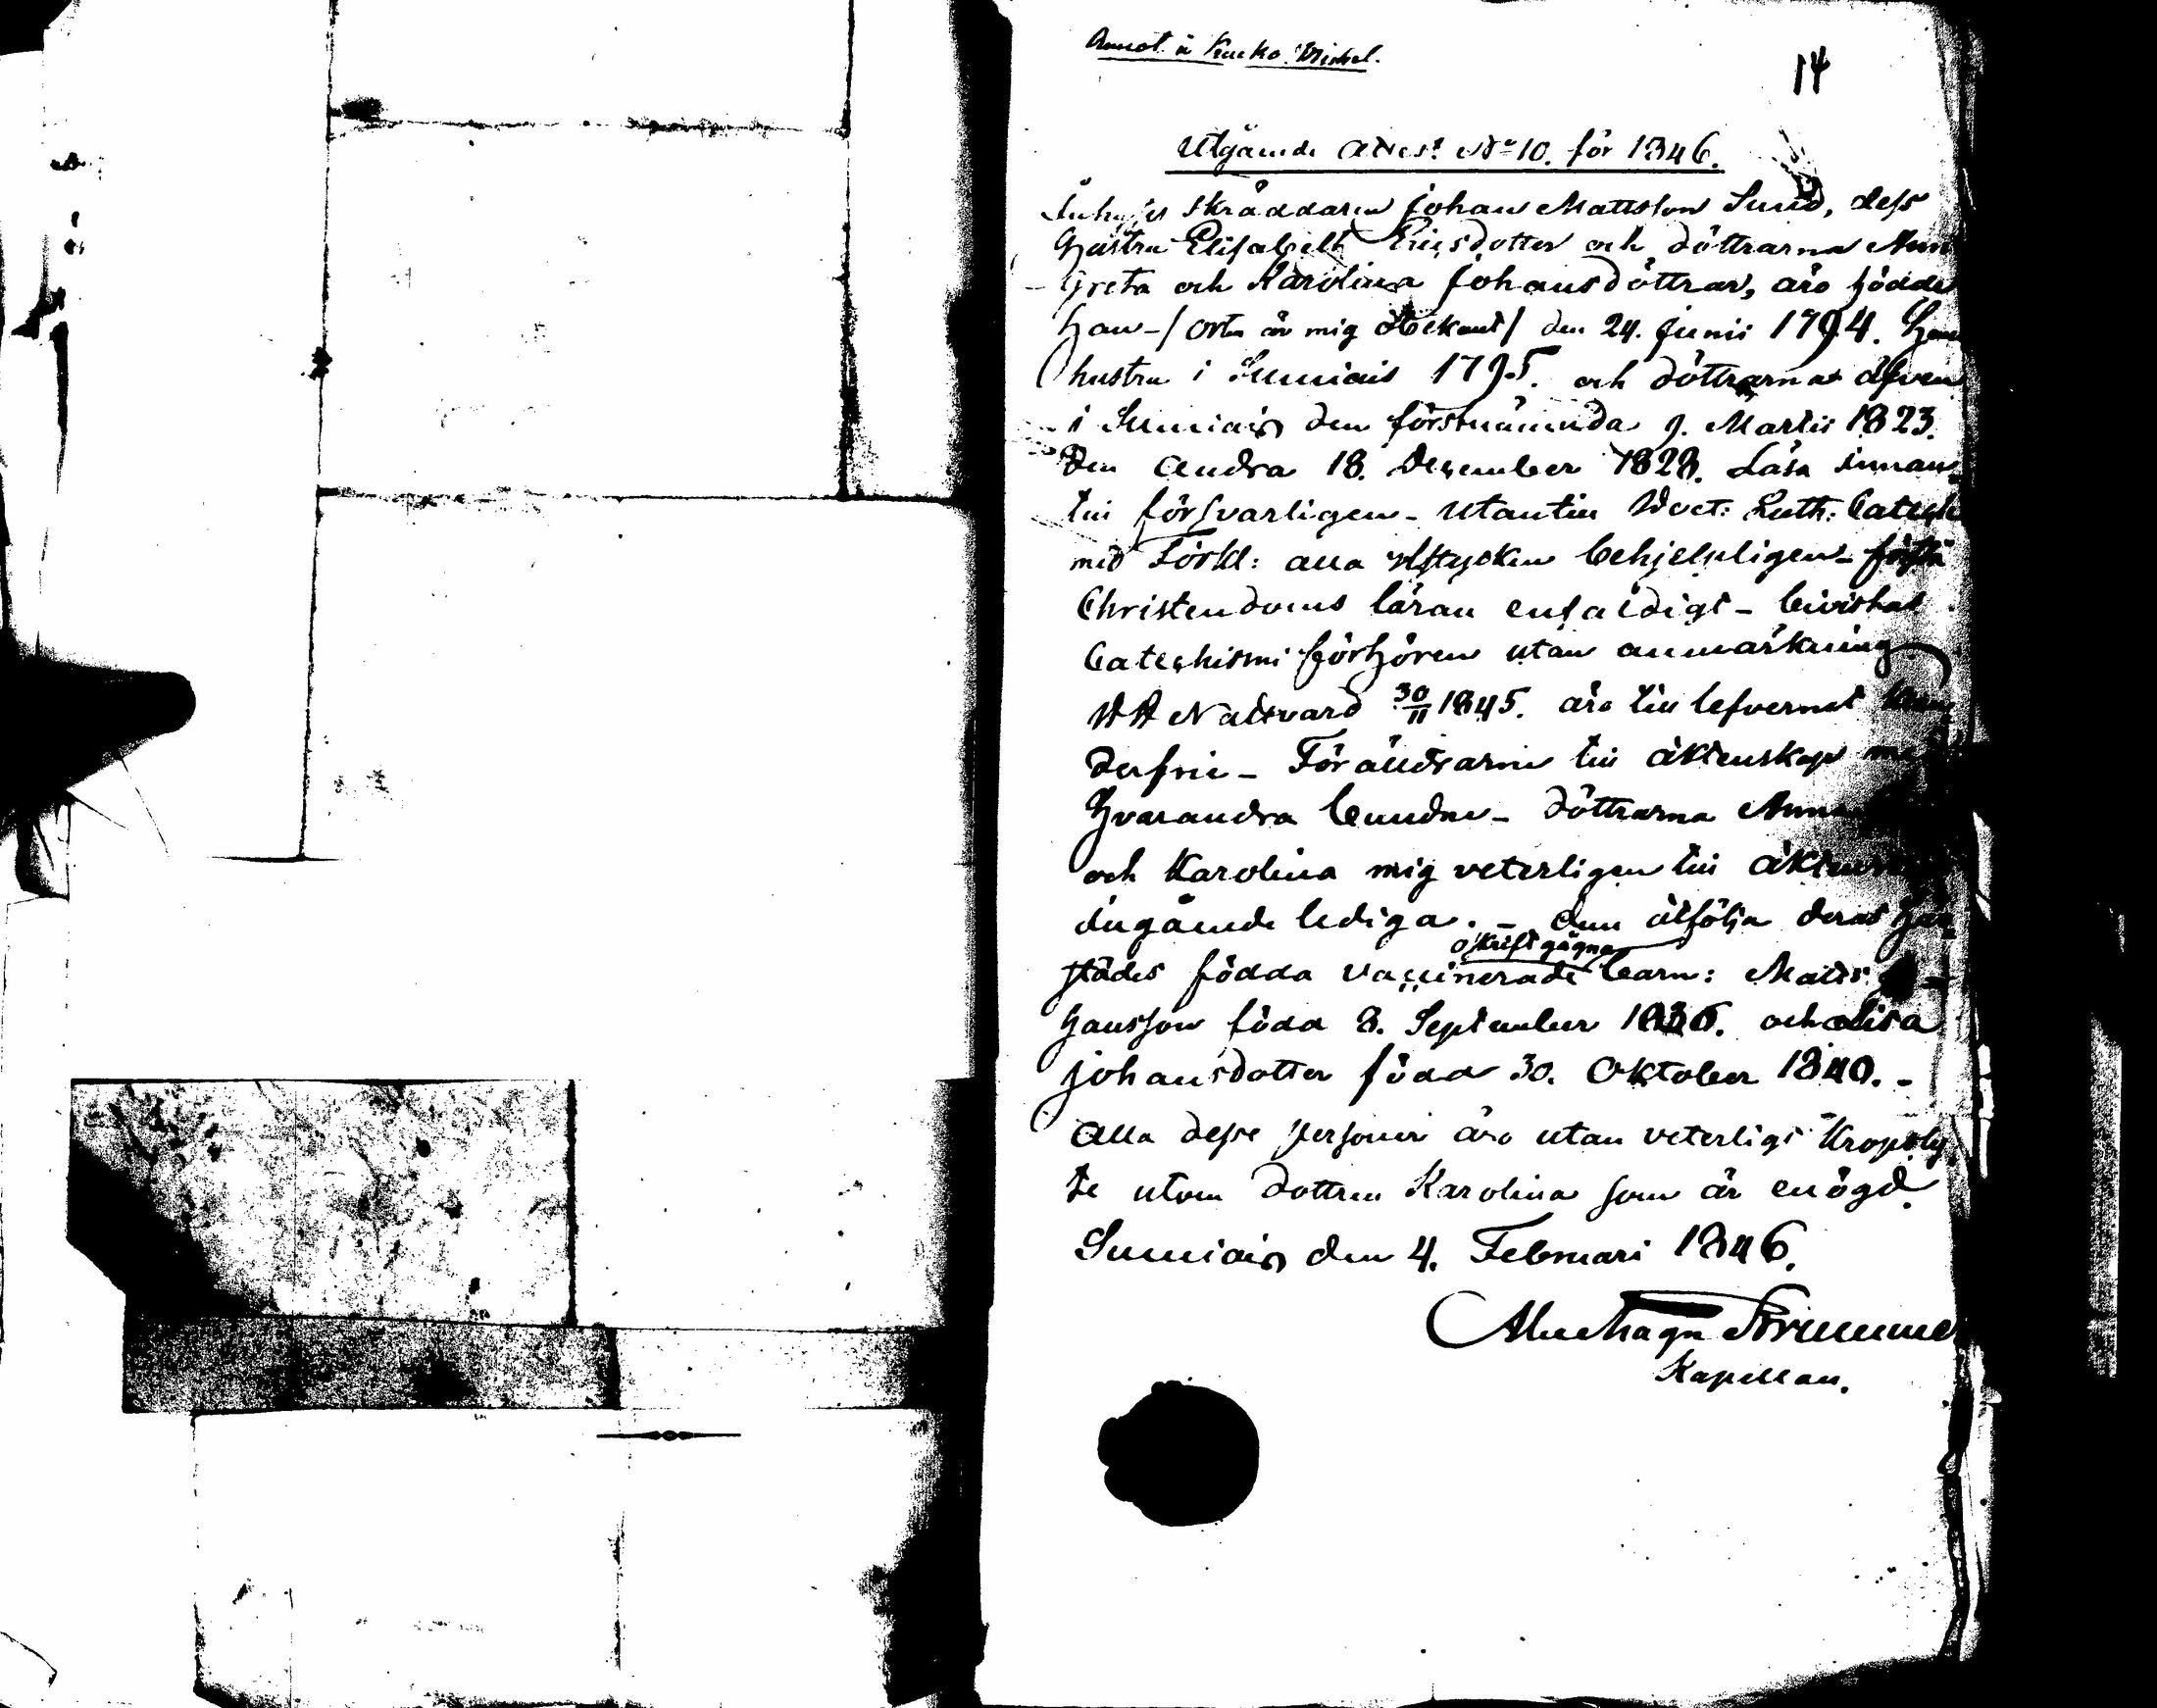 Annot. å Kucko
14
Utgående Attest No 10. för 1846.
Inhyses Skräddaren Johan Mattsson Sund, dess
hustru Elisabeth Ericsdotter och döttrarna Ann
Greta och Karolina Johansdöttrar, äro födde
han - / orten är mig obekant / den 24. Junii 1794. Hans
hustru i Sumiais 1795. och döttrarna äfven
i Sumiais den förstnämnda 9. Martii 1823.
den andra 18. December 1828. Läsa innan
till försvarligen - utantill Doct: Luth: Catech
med Förkl: alla stycken behjelpligen - förstå
Christendoms läran enfaldigt - bivistat
Catechismi förhören utan anmärkning
HH Nattvard 30/11 1845. äro till lefvernet
derfrie - Föräldrarne till äktenskap med
hvarandra bundne - döttrarna Anna
och Karolina mig veterligen till äktenskaps
ingående lediga. - dem åtfölja deras här
oskriftgågna
städes födda vaccinerade barn: Matts Jo-
hansson född 8. September 1836. och Lisa
Johansdotter född 30. Oktober 1840. -
Alla desse personer äro utan veterligt kroppsly
te utom dottren Karolina som är enögd.
Sumiais den 4. Februari 1846.
Kapellan.